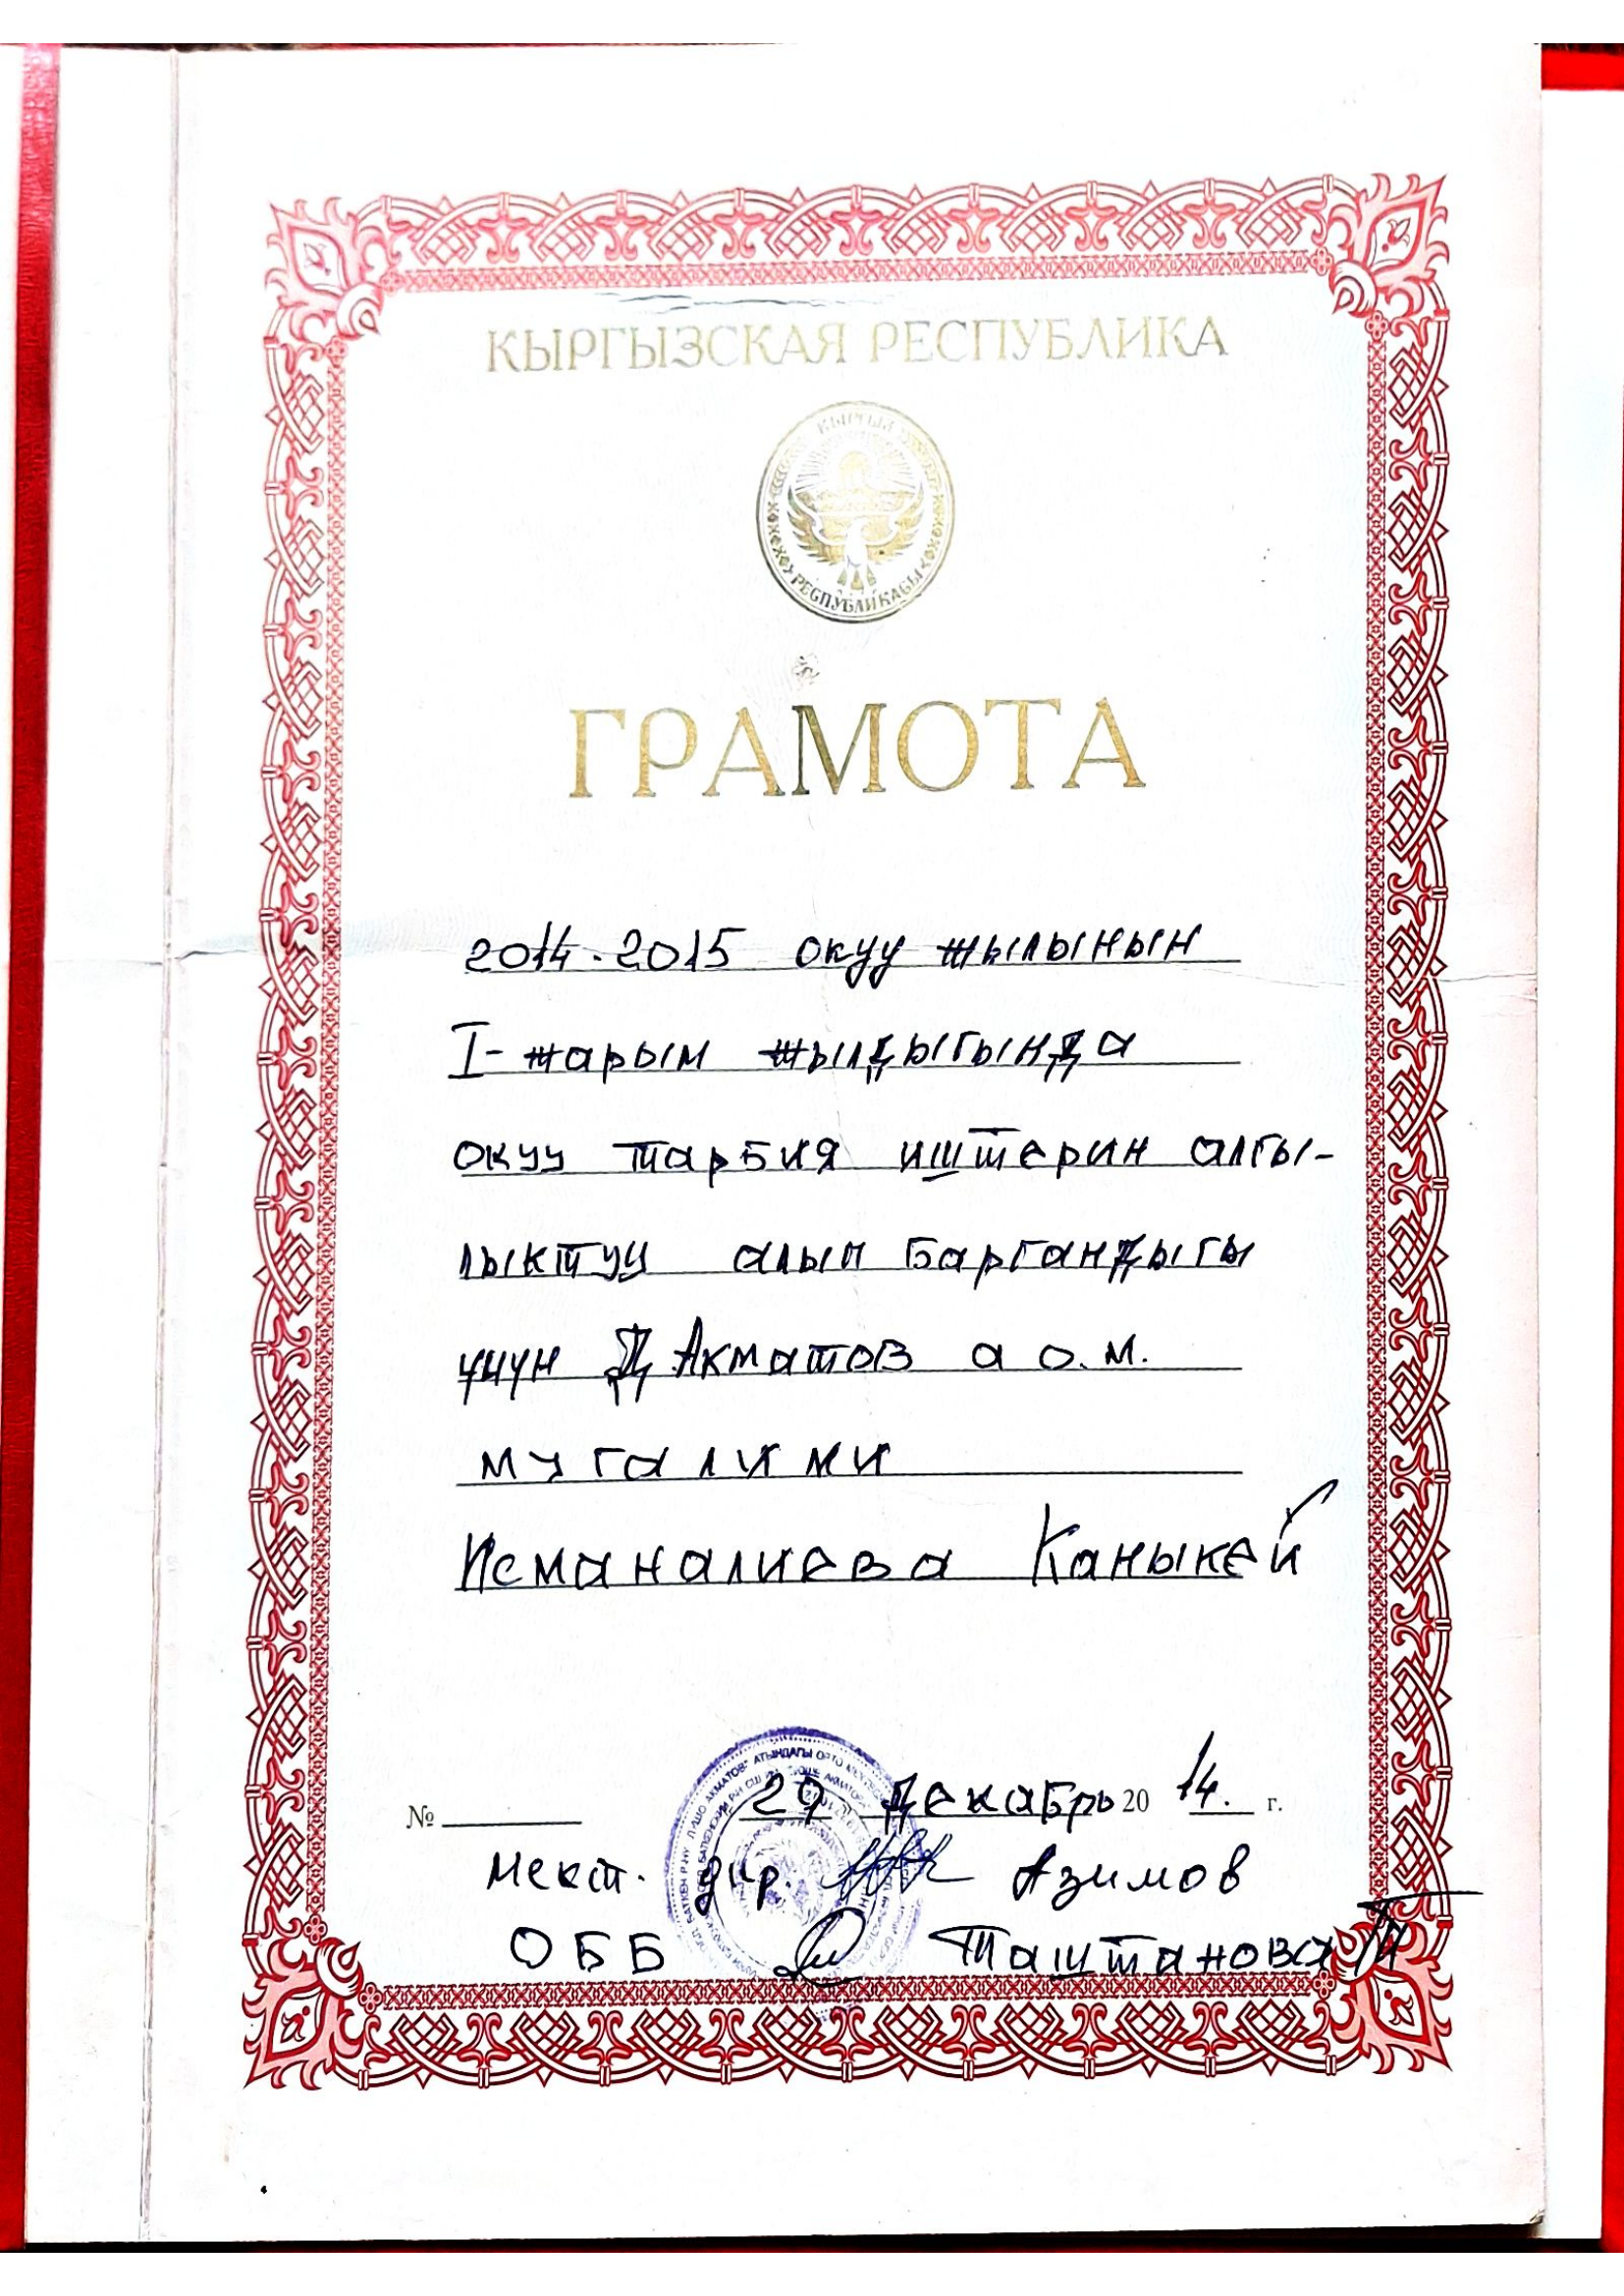 КЫРГЫЗСКАЯ РЕСПУБЛИКА
КЫРГЫЗ РЕСПУБЛИКАСЫ
ГРАМОТА
2014-2015 окуу жылынын
I-жарым жылдыгында
окуу тарбия иштерин алгы-
лыктуу алып баргандыгы
үчүн Д Акматов а о.м.
мугалими
Исманалиева Каныкей
№ 29 декабрь 2014. г.
Мект. дир. Азимов
ОББ Таштанова Т
АКМАТОВ" АТЫНДАГЫ ОРТО